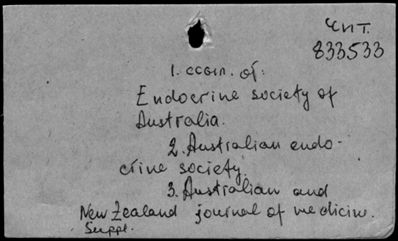 чит.
833533
1. ссыл. от:
Endocrine society of
Australia.
2. Australian endo-
crine society.
3. Australian and
New Zealand journal of medicin.
Suppl.